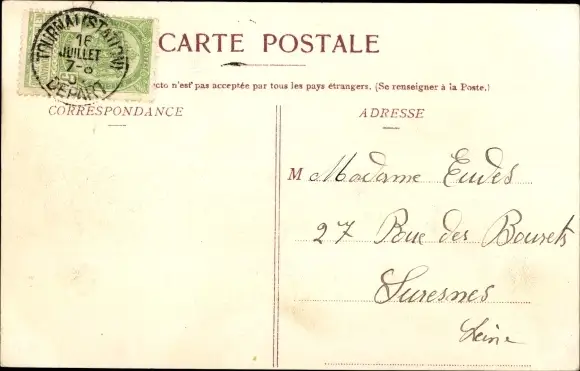 TOURNAI (STATION)
16
JUILLET
7-8
DÉPART
CARTE POSTALE
ecto n'est pas acceptée par tous les pays étrangers. (Se renseigner à la Poste.)
CORRESPONDANCE
ADRESSE
M Madame Eudes
27 Rue des Bourets
Suresnes
Seine